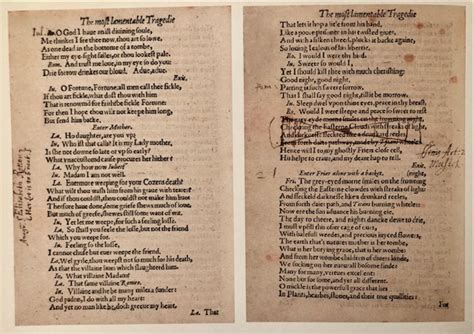 The most lamentable Tragedie
Iu. O God I haue an ill diuining soule,
Me thinkes I see thee now, thou art so lowe,
As one dead in the bottome of a tombe,
Either my eye-sight failes, or thou lookest pale.
Rom. And trust me loue, in my eye so do you:
Drie sorrow drinkes our bloud. Adue, adue.
Exit.
Iu. O Fortune, Fortune, all men call thee fickle,
If thou art fickle, what dost thou with him
That is renowmd for faith? be fickle Fortune:
For then I hope thou wilt not keepe him long,
But send him backe.
Enter Mother.
La. Ho daughter, are you vp?
Iu. Who ist that calls? It is my Lady mother,
Is she not downe so late or vp so early?
What vnaccustomd cause procures her hither?
La. Why how now Iuliet?
Iu. Madam I am not well.
La. Euermore weeping for your Cozens death?
What wilt thou wash him from his graue with teares?
And if thou couldst, thou couldst not make him liue:
Therfore haue done, some griefe shewes much of loue,
But much of greefe, shewes still some want of wit.
Iu. Yet let me weepe, for such a feeling losse.
La. So shall you feele the losse, but not the friend
Which you weepe for.
Iu. Feeling so the losse,
I cannot chuse but euer weepe the friend.
La. Wel gyrle, thou weepst not so much for his death,
As that the villaine liues which slaughterd him.
Iu. What villaine Madam?
La. That same villaine Romeo.
Iu. Villaine and he be many miles a sunder:
God padon, I do with all my heart:
And yet no man like he, doth greeue my heart.
La. That
The most lamentable Tragedie
That lets it hop a litle from his hand,
Like a poore prisoner in his twisted giues,
And with a silken threed, plucks it backe againe,
So louing Iealous of his libertie.
Ro. I would I were thy bird.
Iu. Sweete so would I,
Yet I should kill thee with much cherishing:
Good night, good night.
Parting is such sweete sorrow,
That I shall say good night, till it be morrow.
Iu. Sleep dwel vpon thine eyes, peace in thy breast.
Ro. Would I were sleepe and peace so sweet to rest
The grey eyde morne smiles on the frowning night,
Checkring the Easterne Clouds with streaks of light,
And darknesse fleckted like a drunkard reeles,
From forth daies pathway, made by Tytans wheeles.
Hence will I to my ghostly Friers close cell,
His helpe to craue, and my deare hap to tell.
Exit.
Act: 2
Musick
Enter Frier alone with a basket.
Fri. The grey-eyed morne smiles on the frowning night,
Checking the Easterne clowdes with streaks of light:
And fleckeld darknesse like a drunkard reeles,
From forth daies path, and Titans burning wheeles:
Now ere the sun aduance his burning eie,
The day to cheere, and nights dancke dewe to drie,
I must vpfill this osier cage of ours,
With balefull weedes, and precious iuyced flowers,
The earth that's natures mother is her tombe,
What is her burying graue, that is her wombe:
And from her wombe children of diuers kinde,
We sucking on her naturall bosome finde:
Many for many, vertues excellent:
None but for some, and yet all different.
O mickle is the powerfull grace that lies
In Plants, hearbes, stones, and their true quallities:
For